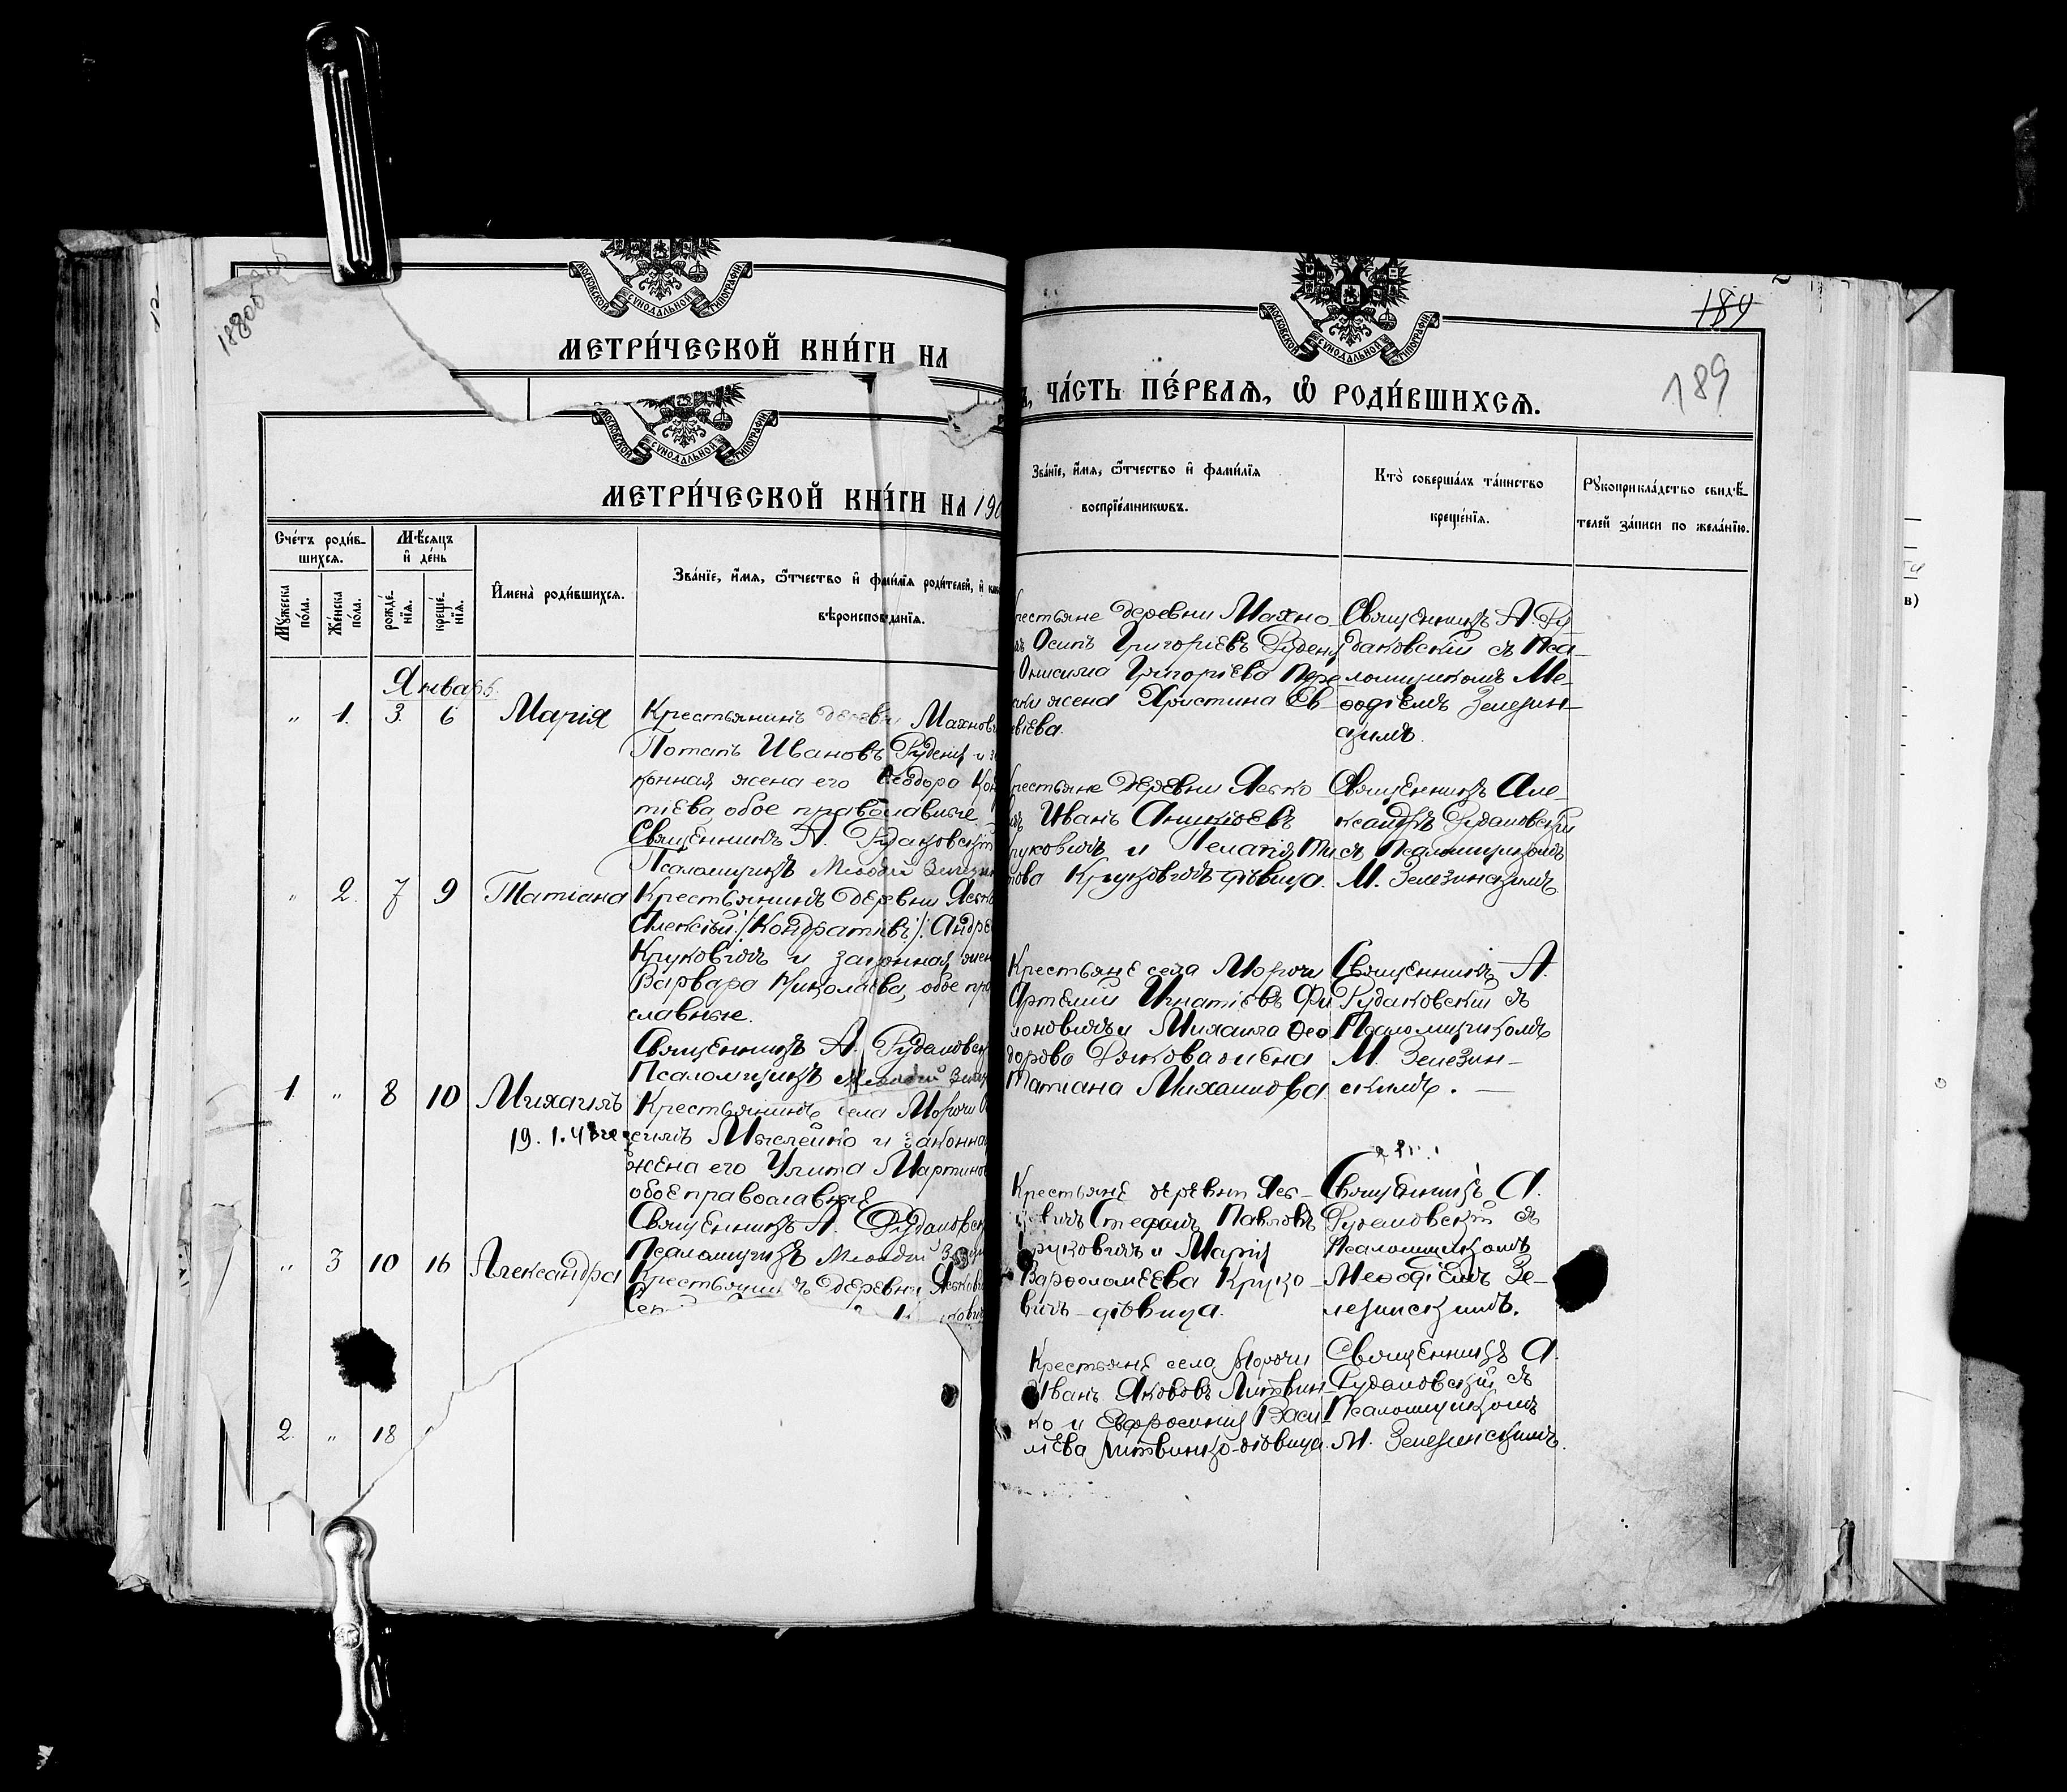 18806
МОСКОВСКОЙ СУНОДАЛЬНОЙ ТИПОГРАФІИ
МЕТРИ́ЧЕСКОЙ КНИ́ГИ НА
МОСКОВСКОЙ СУНОДАЛЬНОЙ ТИПОГРАФІИ
МЕТРИ́ЧЕСКОЙ КНИ́ГИ НА 190
Счетъ роди́в-
шихсѧ.
Мѣ́сяцъ
и҆ де́нь
Мꙋ́жеска по́ла.
Же́нска по́ла.
рожде́-нїѧ.
креще́-нїѧ.
И҆мена̀ роди́вшихсѧ.
Зва́нїе, и҆́мѧ, ѻ҆́тчество и҆ фами́лїѧ роди́телей, и҆
вѣроисповѣ́данїѧ.
Январь.
„ 1. 3. 6 Марія
Крестьянинъ деревни Махнови
Потапъ Ивановъ Руденя и за
конная жена его Ѳеодора Кон
тіева обое православные
Священникъ А. Рудаковскій
Псаломщикъ Меѳодій Зелезин
„ 2. 7 9 Татіана
Крестьянинъ деревни Ясько
Алексѣй /:Кондратіевъ:/ Андре
Круковичъ и законная жен
Варвара Николаева, обое пра
славные.
Священникъ А. Рудаковск
Псаломщикъ Меѳодій Зелез
1. „ 8 10 Михаилъ
19.1.43 г
Крестьянинъ села Морочи
силъ Мыслейко и законна
жена его Улита Мартинов
обое православные
Священникъ А. Рудаковск
Псаломщикъ Меѳодій Зелезин
„ 3 10 16 Александра
Крестьянинъ деревни Яськови
2. „ 18
МОСКОВСКОЙ СУНОДАЛЬНОЙ ТИПОГРАФІИ
184
189
ЧА́СТЬ ПЕ́РВАѦ, Ѽ РОДИ́ВШИХСѦ.
Зва́нїе, и҆́мѧ, ѻ҆́тчество и҆ фами́лїѧ
воспрїе́мникѡвъ.
Кто̀ соверша́лъ та́инство
креще́нїѧ.
Рꙋкоприкла́дство свидѣ́-
телей за́писи по жела́нїю.
рестьяне деревни Махно
Осипъ Григоріевъ Руденя
Онисима Григоріева Пере
жена Христина Ев-
ѳіева.
Священникъ А. Ру
даковскій съ Пса-
ломщикомъ Ме-
ѳодіемъ Зелезин-
скимъ.
рестьяне деревни Ясько
Иванъ Аникіевъ
руковичъ и Пелагія Ти
това Круковичъ дѣвица.
Священникъ Але-
ксандръ Рудаковскій
съ Псаломщикомъ
М. Зелезинскимъ
Крестьяне села Морочи
Артемій Игнатіевъ Фи
лоновичъ и Михаила Ѳео
дорова Рожкова жена
Татіана Михаилова
Священникъ А.
Рудаковскій съ
Псаломщикомъ
М. Зелезин-
скимъ. —
Крестьяне деревни Ясь-
ковичъ Стефанъ Павловъ
Круковичъ и Марія
Варѳоломеева Круко-
вичъ - дѣвица.
Священникъ А.
Рудаковскій съ
Псаломщикомъ
Меѳодіемъ Зе-
лезинскимъ.
Крестьяне села Морочи
Иванъ Яковъ Литвин-
ко и Евфросинія Васи
лева Литвинко-дѣвица.
Священникъ А.
Рудаковскій съ
Псаломщикомъ
М. Зелезинскимъ.